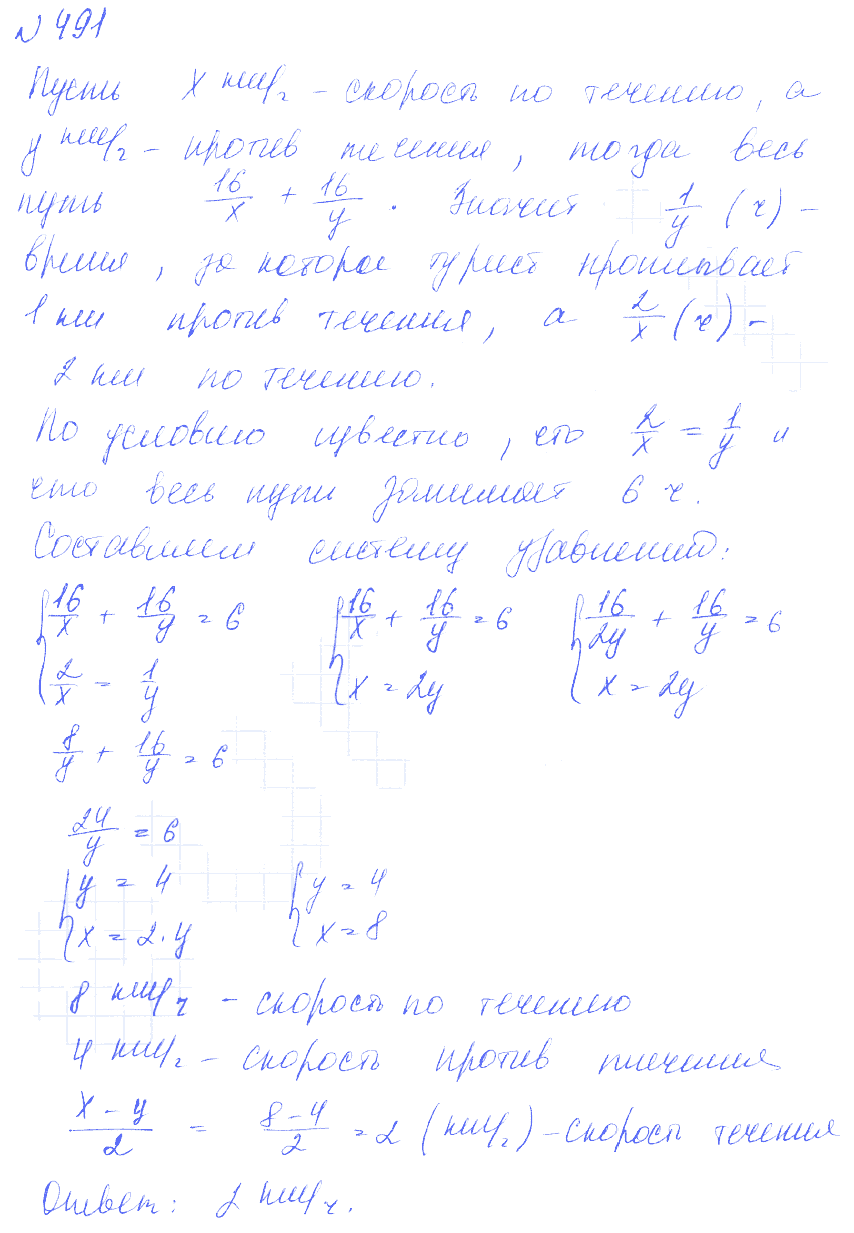 № 491
Пусть x км/ч – скорость по течению, а
y км/ч – против течения, тогда весь
путь 16/x + 16/y. Значит 1/y (ч) –
время, за которое турист проплывает
1 км против течения, а 2/x (ч) –
2 км по течению.
По условию известно, что 2/x = 1/y и
что весь путь занимает 6 ч.
Составляем систему уравнений:
{16/x + 16/y = 6 {16/x + 16/y = 6 {16/2y + 16/y = 6
{2/x = 1/y {x = 2y {x = 2y
8/y + 16/y = 6
24/y = 6
{y = 4 {y = 4
{x = 2·y {x = 8
8 км/ч – скорость по течению
4 км/ч – скорость против течения
x – y/2 = 8 – 4/2 = 2 (км/ч) – скорость течения
Ответ: 2 км/ч.